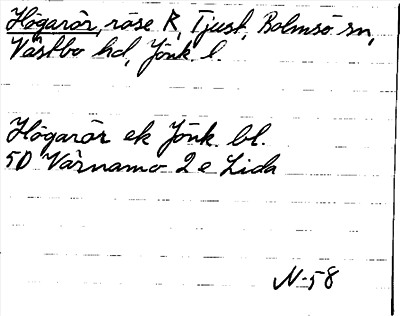 Högarör, röse R, Tjust, Bolmsö sn,
Västbo hd, Jönk. l.
Högarör ek Jönk. bl.
5D Värnamo 2e Lida
N-58